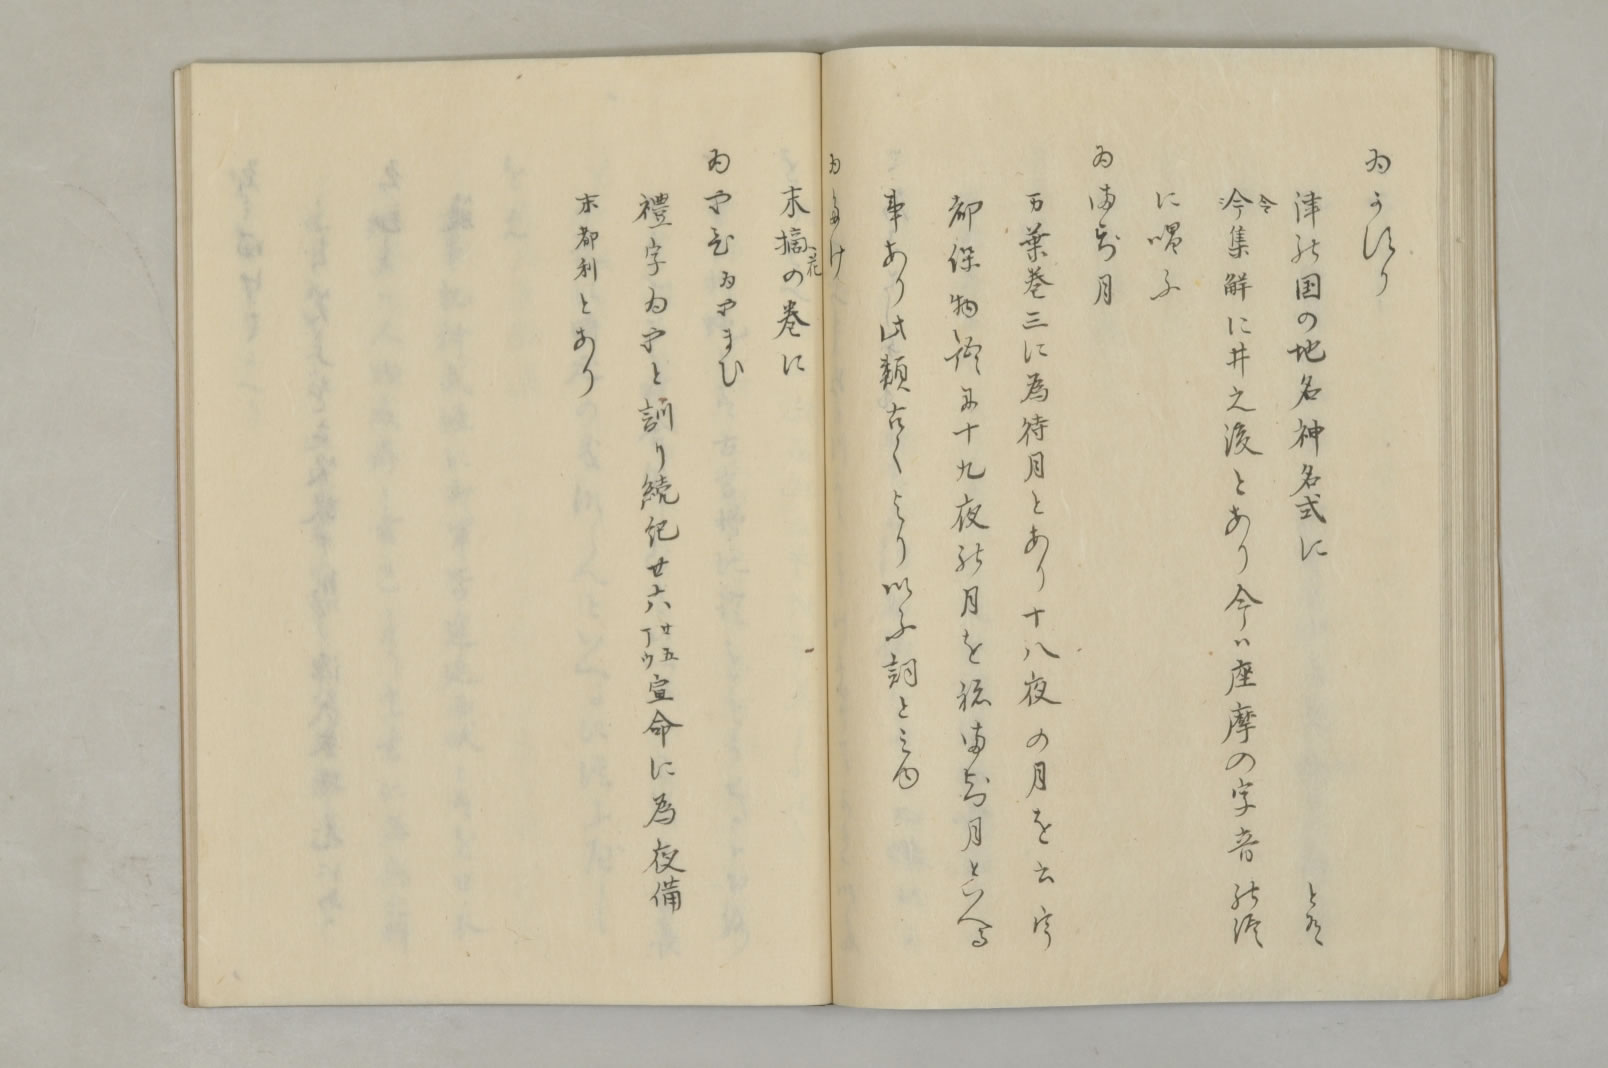 ゐかしり
津能国の地名神名式に とそ
令集解に井之後とあり今ハ座摩の字音能濱
に唱ふ
ゐまち月
万葉巻三に為待月とあり十八夜の月を云宇
都保物語に十九夜能月を祢まち月といへる
事あり此類古くより以ふ詞とみゆ
ゐたけ
末摘花の巻に
ゐやひゐやまひ
禮字ゐやと訓り続紀廿六廿五丁ウ宣命に為夜備
末都利とあり